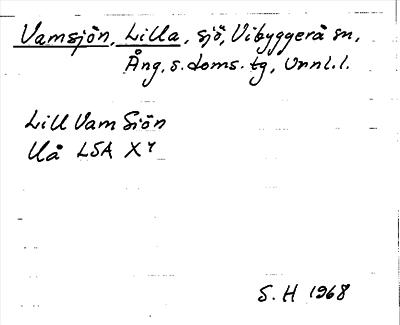 Vamsjön, Lilla, sjö, Vibyggerå sn,
Ång. s. doms. tg, Vnnl. l.
Lill Vam Siön
Uå LSA X
S. H 1968